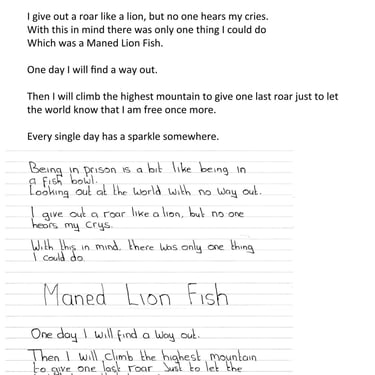 I give out a roar like a lion, but no one hears my cries.
With this in mind there was only one thing I could do
Which was a Maned Lion Fish.
One day I will find a way out.
Then I will climb the highest mountain to give one last roar just to let
the world know that I am free once more.
Every single day has a sparkle somewhere.
Being in prison is a bit like being in
a fish bowl.
Looking out at the world with no way out.
I give out a roar like a lion, but no one
hears my crys.
With this in mind, there was only one thing
I could do.
Maned Lion Fish
One day I will find a way out.
Then I will climb the highest mountain
to give one last roar Just to let the